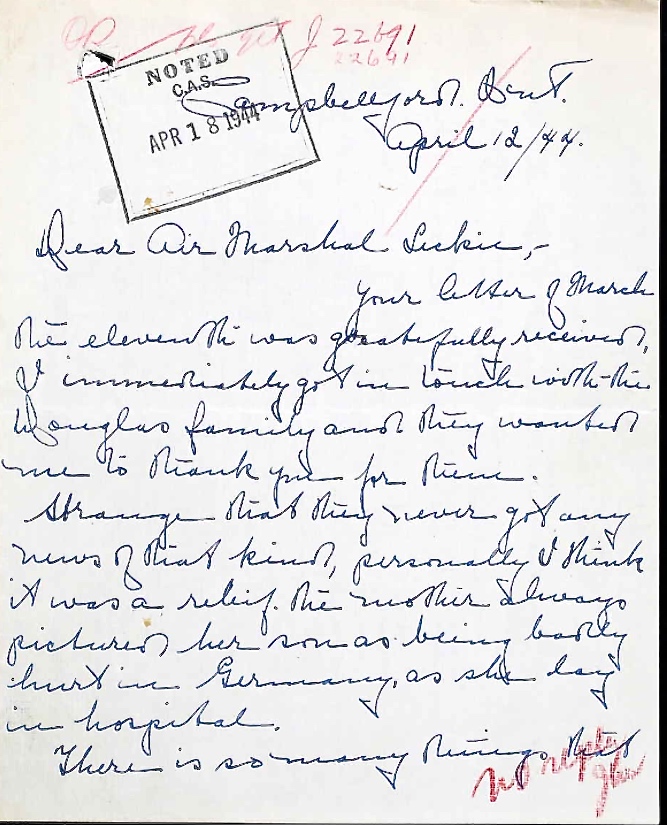 J 22691
22691
NOTED
C.A.S.
APR 18 1944
Campbellford. Ont.
April 12/44.
Dear Air Marshal Leckie,-
Your letter of March
the eleventh was greatefully received,
I immediately got in touch with the
Douglas family and they wanted
me to thank you for them.
Strange that they never got any
news of that kind, personally I think
it was a relief. The mother always
pictured her son as being badly
hurt in Germany, as she lay
in hospital.
There is so many things that
no reply